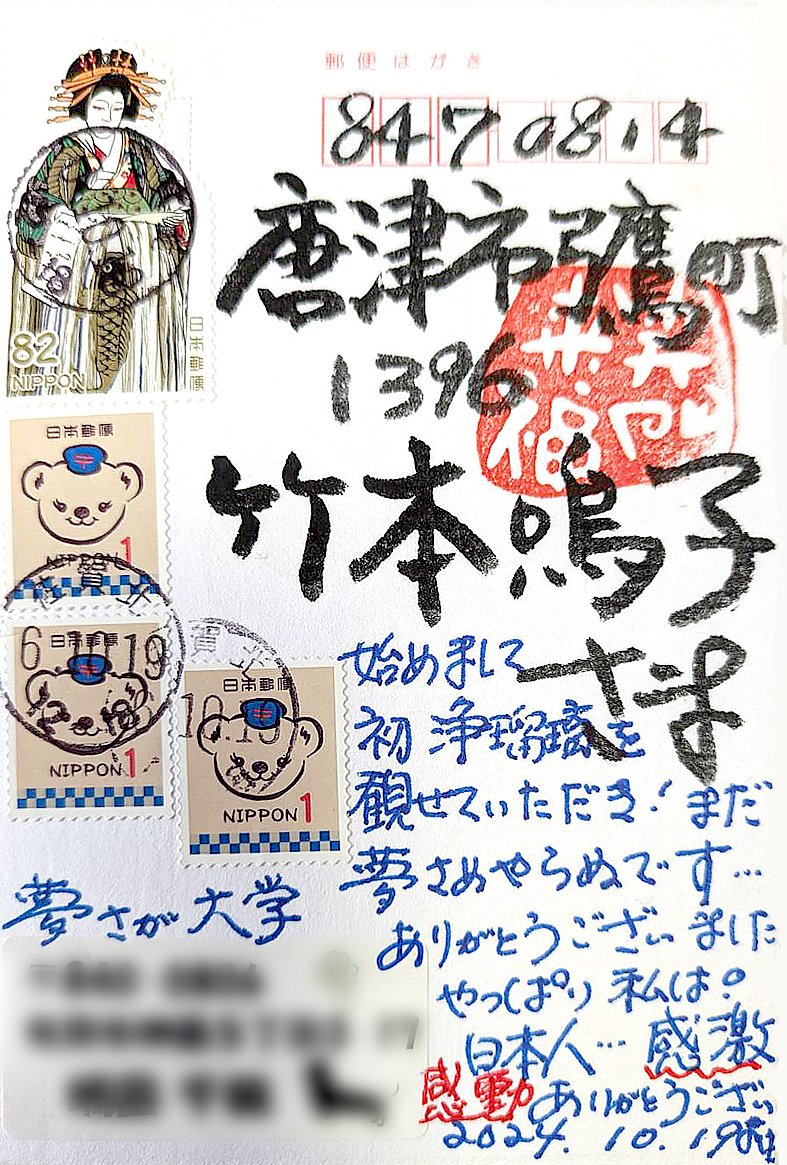 郵便はがき
847 0814
唐津市弓鷹町
1396
竹本鳴子
さま
82
NIPPON
日本郵便
日本郵便
NIPPON 1
日本郵便
NIPPON 1
日本郵便
NIPPON 1
6.10.19
10.19
始めまして
初 浄瑠璃を
観せていただき! まだ
夢さめやらぬです…
ありがとうございました
やっぱり 私は。
日本人… 感激
感動 ありがとうござい
2024. 10. 19
夢さが大学